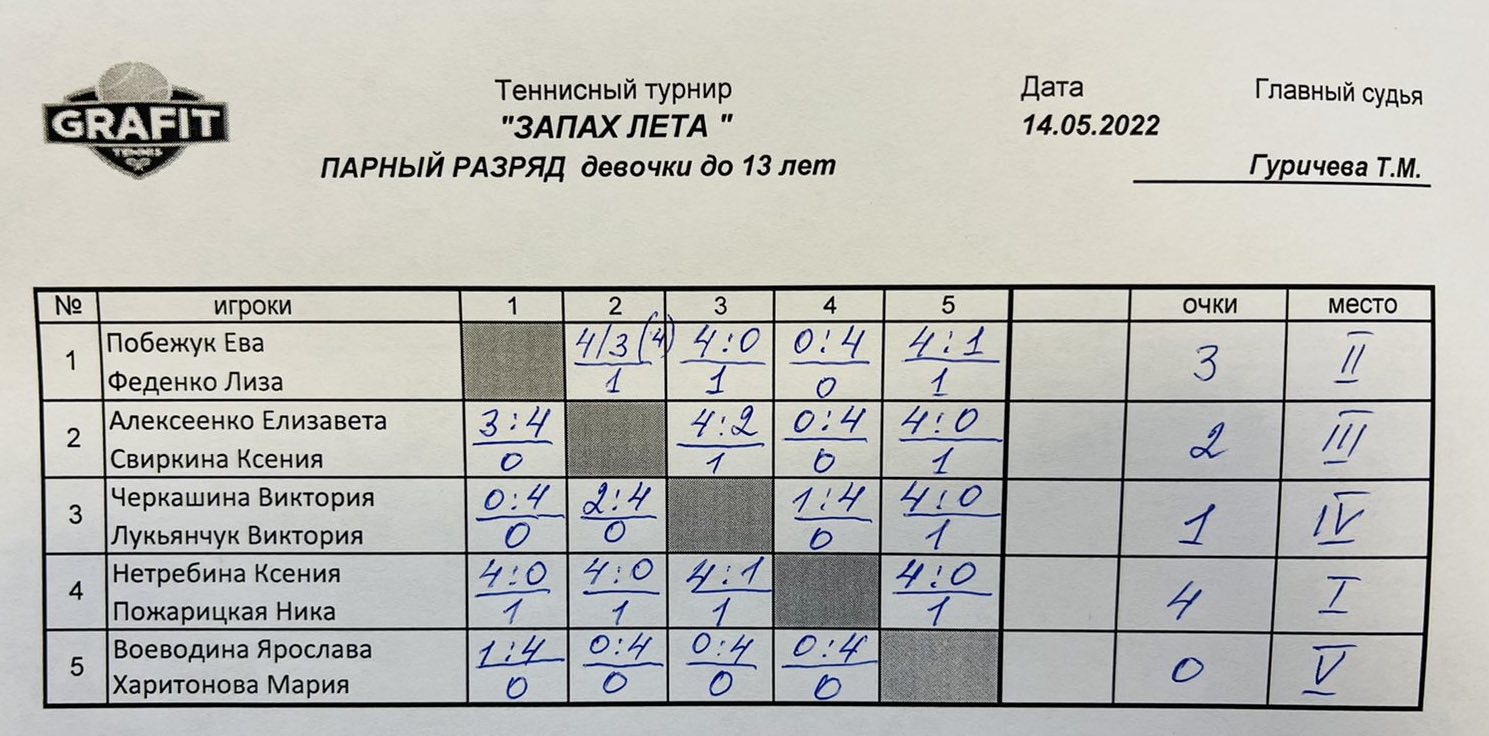 GRAFIT
TENNIS
Теннисный турнир
"ЗАПАХ ЛЕТА "
ПАРНЫЙ РАЗРЯД девочки до 13 лет
Дата
14.05.2022
Главный судья
Гуричева Т.М.
№ игроки 1 2 3 4 5 очки место
1 Побежук Ева 4/3(4) 4:0 0:4 4:1 3 II
Феденко Лиза 1 1 0 1
2 Алексеенко Елизавета 3:4 4:2 0:4 4:0 2 III
Свиркина Ксения 0 1 0 1
3 Черкашина Виктория 0:4 2:4 1:4 4:0 1 IV
Лукьянчук Виктория 0 0 0 1
4 Нетребина Ксения 4:0 4:0 4:1 4:0 4 I
Пожарицкая Ника 1 1 1 1
5 Воеводина Ярослава 1:4 0:4 0:4 0:4 0 V
Харитонова Мария 0 0 0 0